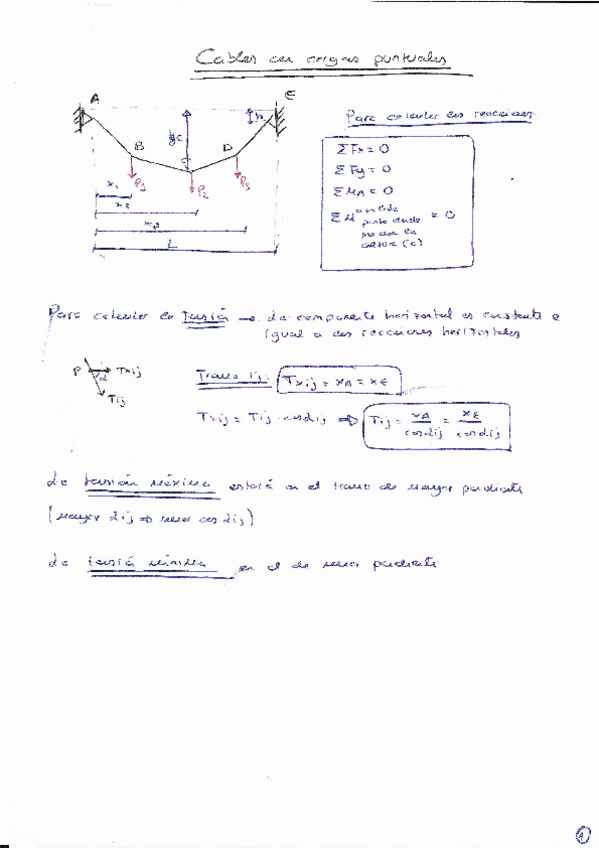 Cables con cargas puntuales
A
E
h
yc
B
C
D
P1
P2
P3
x1
x2
x3
L
Para calcular las reacciones
ΣFx = 0
ΣFy = 0
ΣMA = 0
ΣM en este punto donde me dan la altura (c) = 0
Para calcular la Tensión → La componente horizontal es constante e
igual a las reacciones horizontales
P
α
Txij
Tij
Tramo ij:
Txij = XA = XE
Txij = Tij · cosαij ⇒ Tij = XA/cosαij = XE/cosαij
La tensión máxima estará en el tramo de mayor pendiente
(mayor αij ⇒ menor cosαij)
La tensión mínima en el de menor pendiente
1